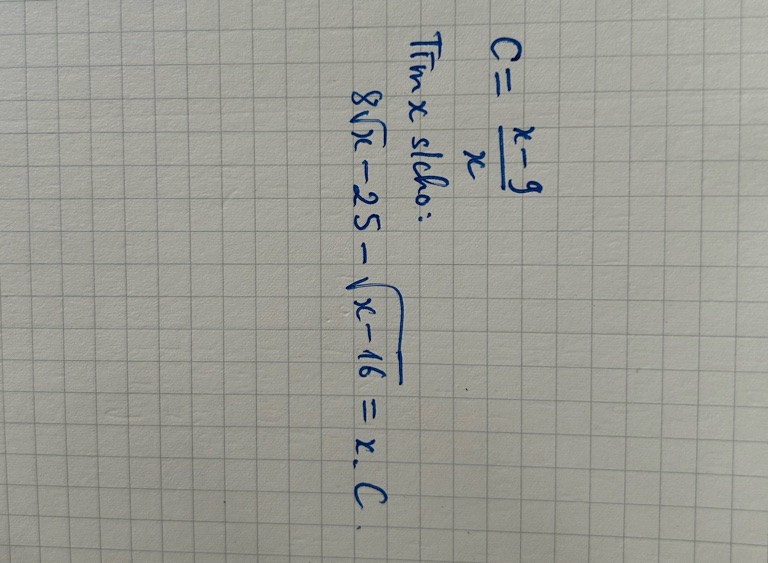 C = \frac{x-9}{x}
Tìm x s/cho:
8√x - 25 - \sqrt{x-16} = x.C.